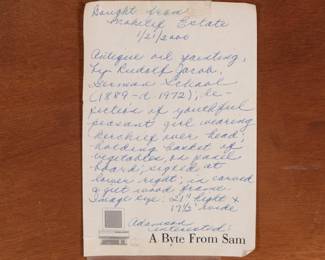 Bought from
Estate
1/21/2000
Antique oil painting,
by Rudolf Jacob,
German School
(1889-d 1972); de-
piction of youthful
peasant girl wearing
kerchief over head;
holding basket of
vegetables, on panel
board; signed at
lower right; in carved
& gilt wood frame.
Image size: 21" hight x
17½" wide
Adamson
interested!
A Byte From Sam